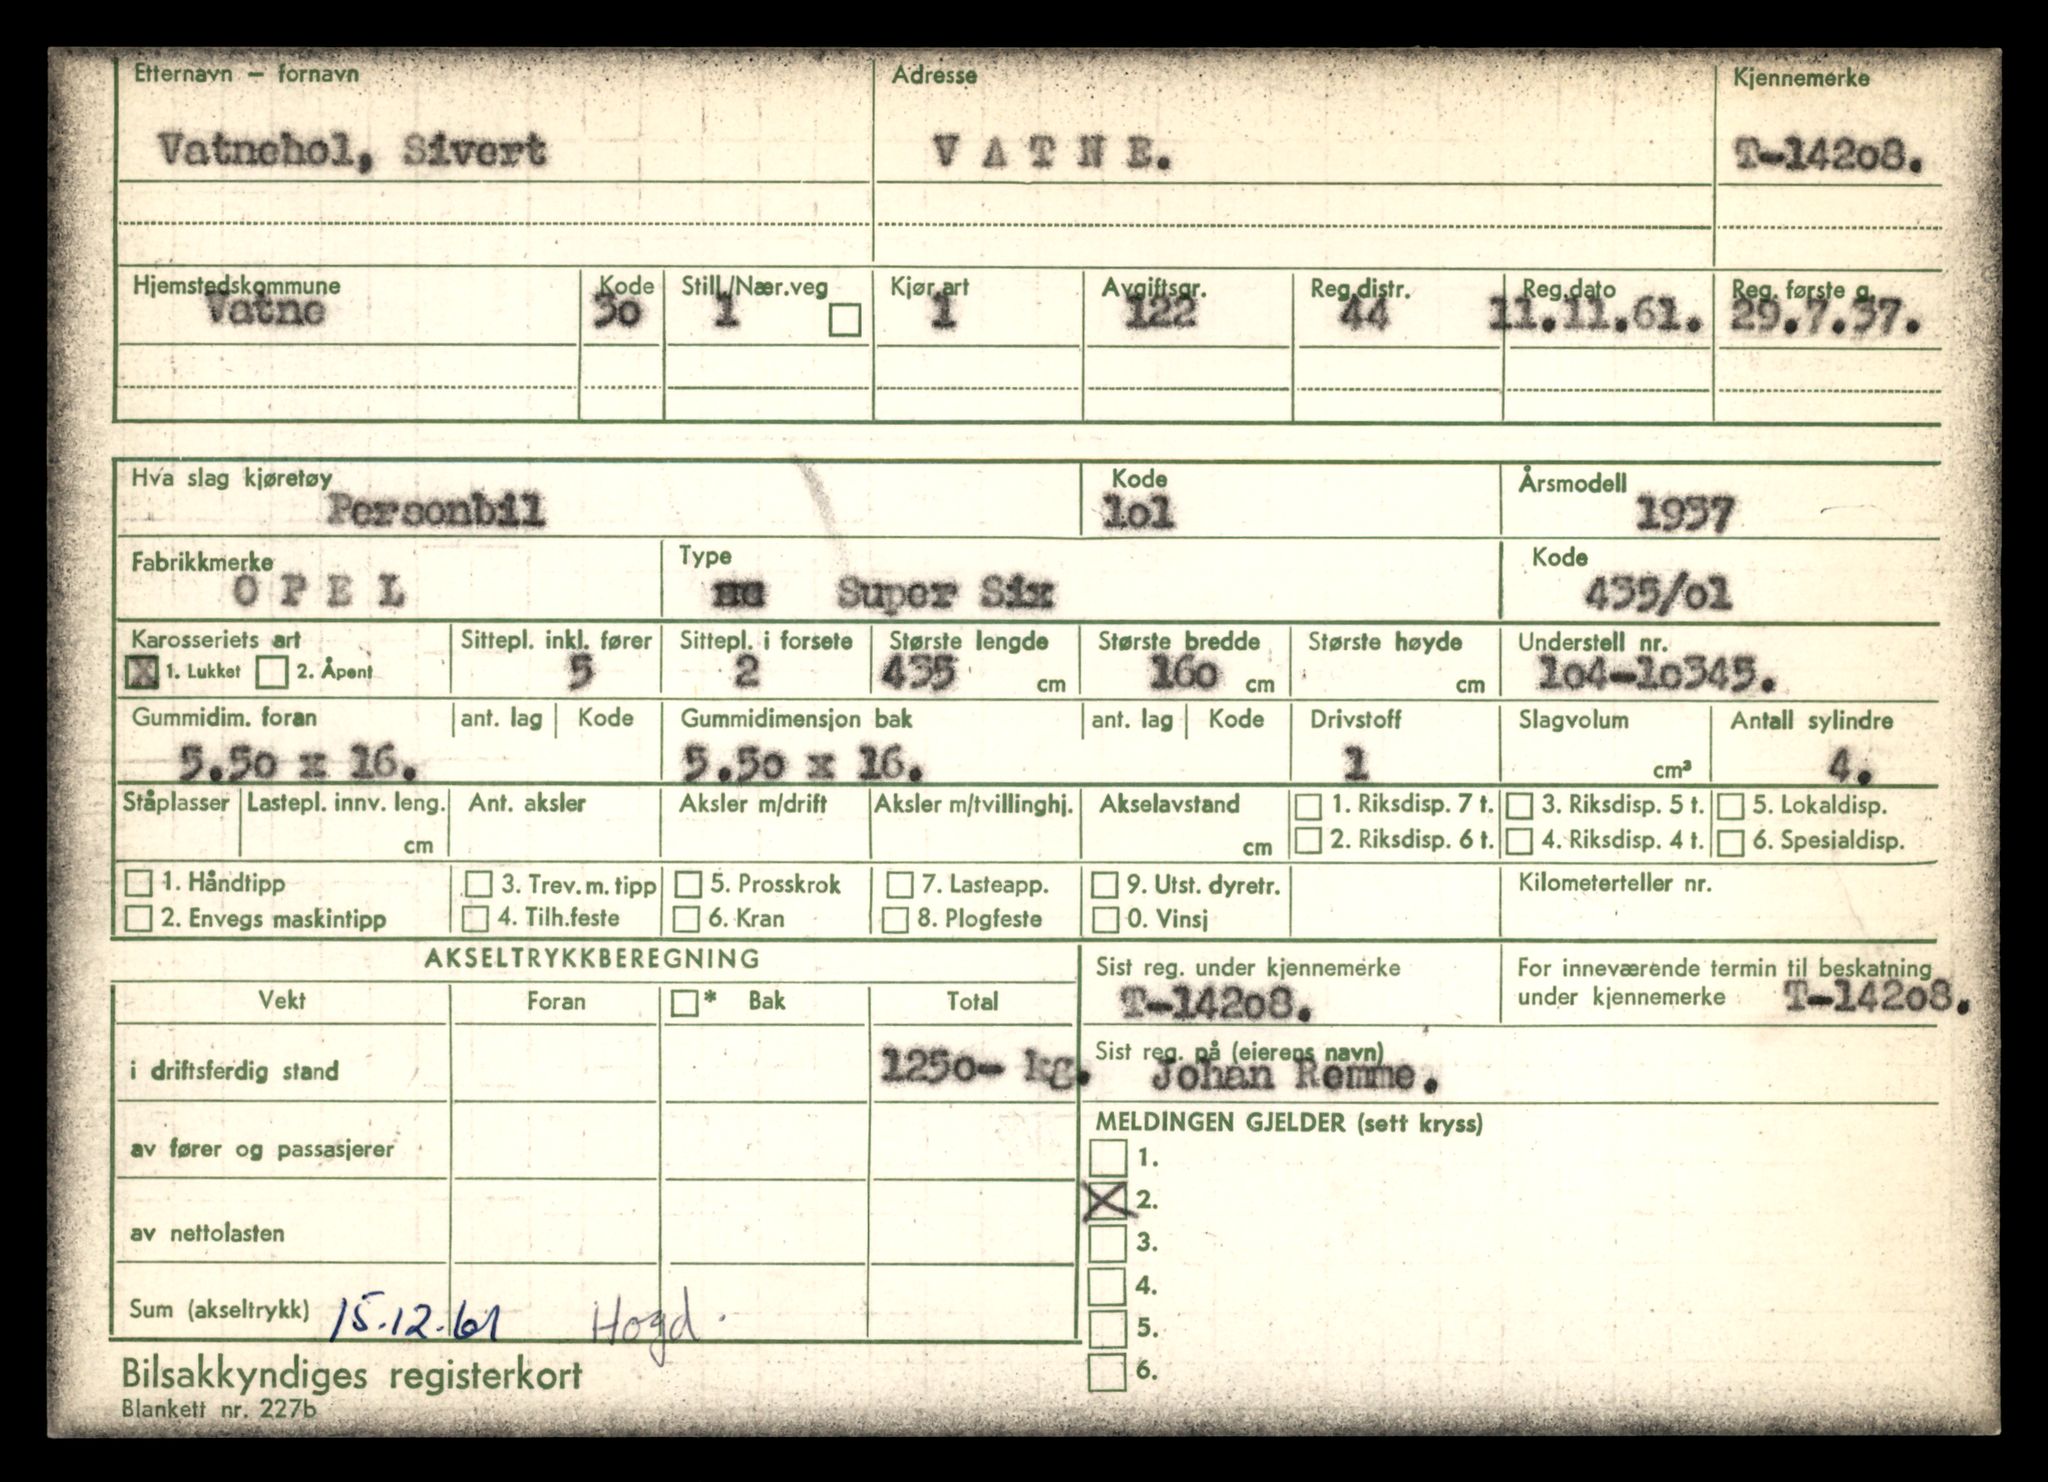 Etternavn – fornavn Adresse Kjennemerke
Vatnehol, Sivert V A T N E. T-14208.
Hjemstedskommune Kode Still./Nær.veg Kjør.art Avgiftsgr. Reg.distr. Reg.dato Reg. første g.
Vatne 30 1 1 122 44 11.11.61. 29.7.37.
Hva slag kjøretøy Kode Årsmodell
Personbil 101 1937
Fabrikkmerke Type Kode
O P E L Super Six 435/01
Karosseriets art Sittepl. inkl. fører Sittepl. i forsete Største lengde Største bredde Største høyde Understell nr.
X 1. Lukket 2. Åpent 5 2 435 cm 160 cm cm 104-10345.
Gummidim. foran ant. lag Kode Gummidimensjon bak ant. lag Kode Drivstoff Slagvolum Antall sylindre
5.50 x 16. 5.50 x 16. 1 cm³ 4.
Ståplasser Lastepl. innv. leng. Ant. aksler Aksler m/drift Aksler m/tvillinghj. Akselavstand 1. Riksdisp. 7 t. 3. Riksdisp. 5 t. 5. Lokaldisp.
cm cm 2. Riksdisp. 6 t. 4. Riksdisp. 4 t. 6. Spesialdisp.
1. Håndtipp 3. Trev. m. tipp 5. Prosskrok 7. Lasteapp. 9. Utst. dyretr. Kilometerteller nr.
2. Envegs maskintipp 4. Tilh.feste 6. Kran 8. Plogfeste 0. Vinsj
AKSELTRYKKBEREGNING
Sist reg. under kjennemerke For inneværende termin til beskatning
T-14208. under kjennemerke T-14208.
Vekt Foran * Bak Total
i driftsferdig stand 1250- kg.
Sist reg. på (eierens navn)
Johan Remme.
av fører og passasjerer
av nettolasten
Sum (akseltrykk) 15.12.61 Hogd.
MELDINGEN GJELDER (sett kryss)
1.
X 2.
3.
4.
5.
6.
Bilsakkyndiges registerkort
Blankett nr. 227b